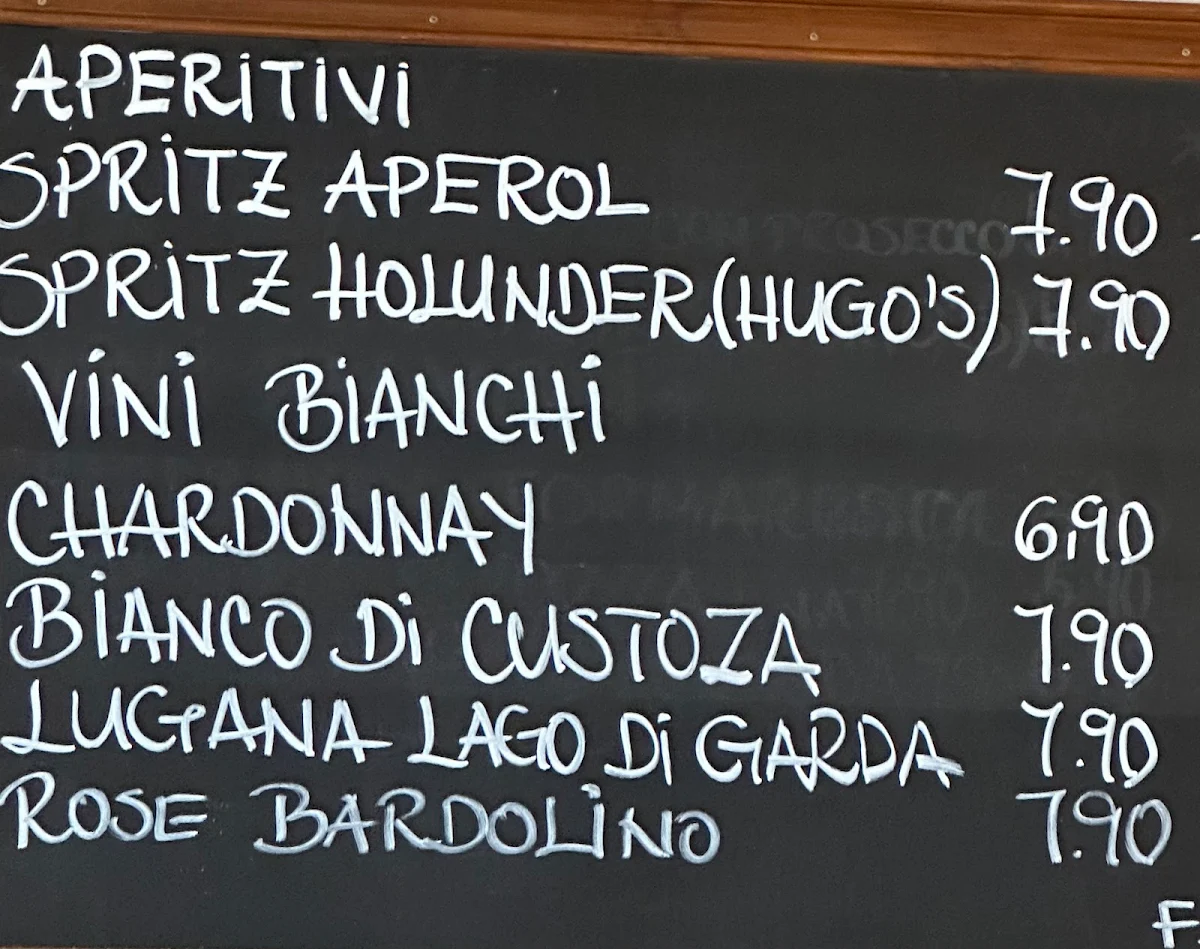 APERITIVI
SPRITZ APEROL 7.90
SPRITZ HOLUNDER (HUGO'S) 7.90
VINI BIANCHI
CHARDONNAY 6,90
BIANCO DI CUSTOZA 7.90
LUGANA LAGO DI GARDA 7.90
ROSE BARDOLINO 7.90
F